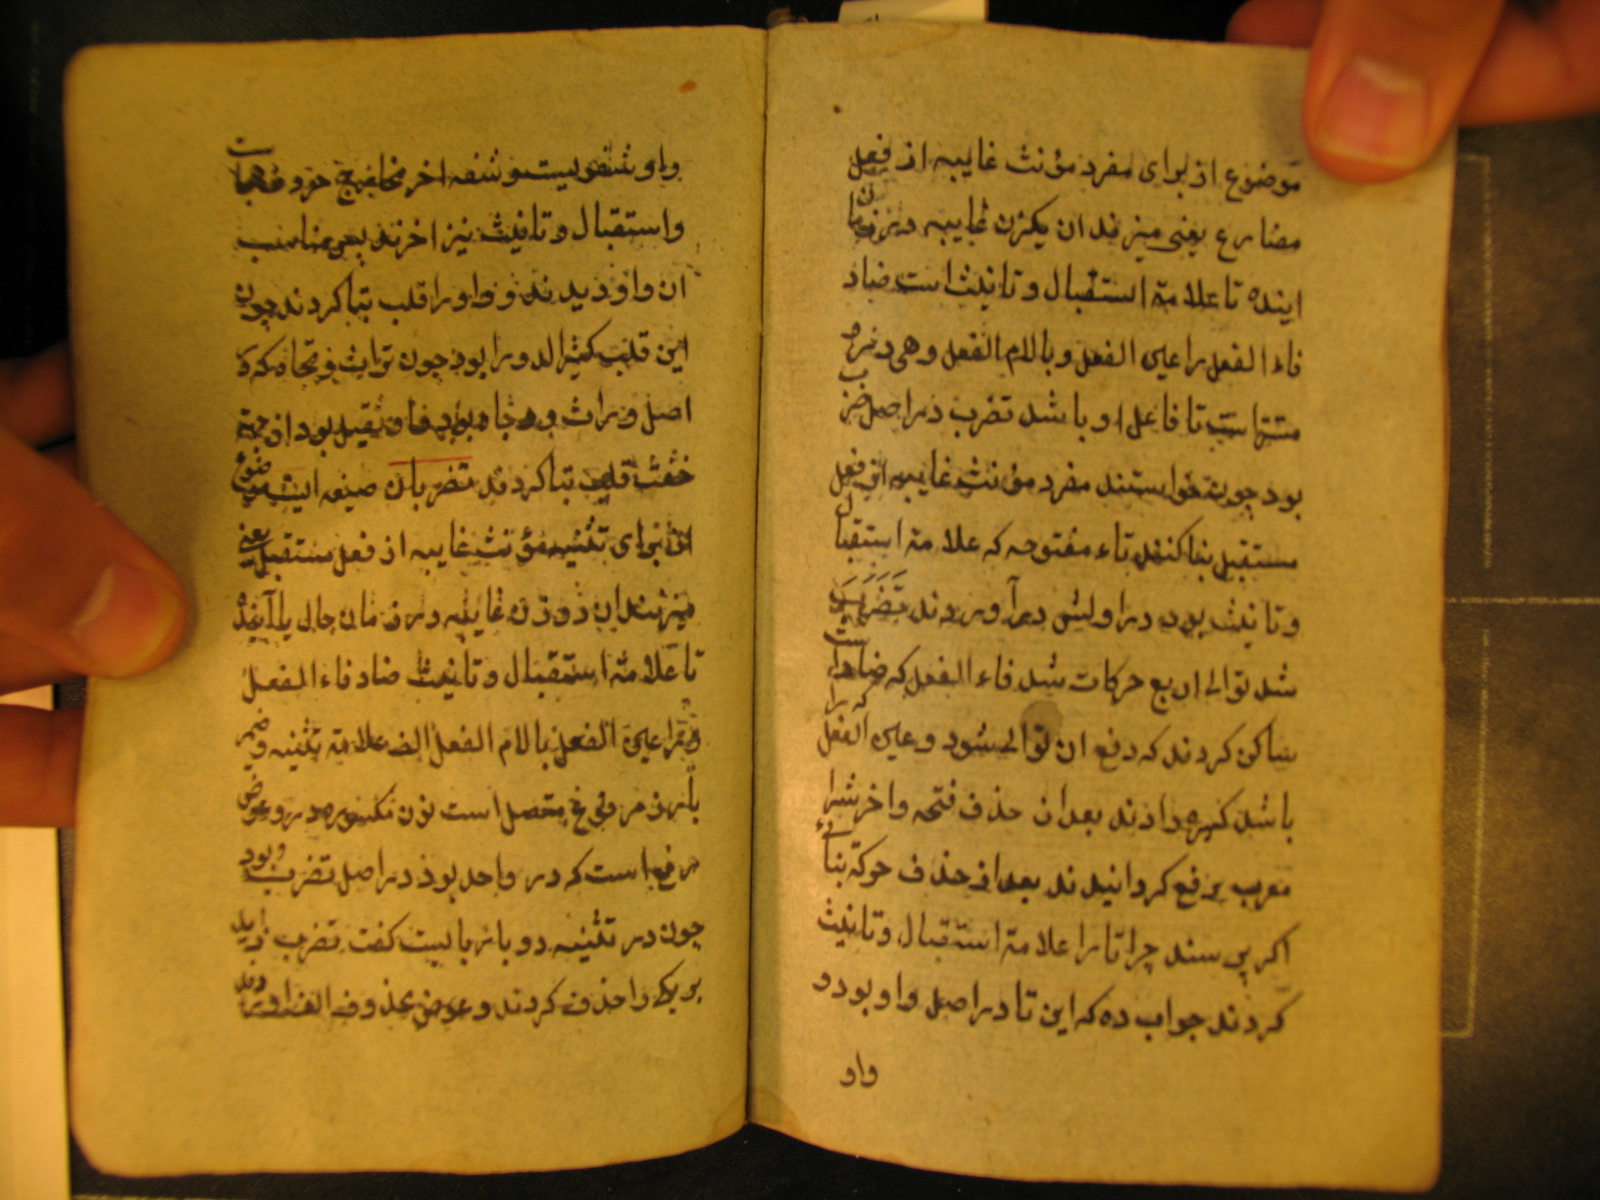 موضوع از برای مفرد مؤنث غایبه از فعل
مضارع یعنی میزند ان یکزن غایبه در زمان
اینده تا علامة استقبال و تانیث است ضاد
فاء الفعل را عین الفعل و با لام الفعل وهی درو
مستتر است تا فاعل او باشد تضرب در اصل ضرب
بود چون خواستند مفرد مؤنث غایبه از فعل
مستقبل بنا کنند تاء مفتوحه که علامة استقبال
و تانیث بود در اولش در آوردند تَضَرَبَ
شد توالی اربع حرکات شد فاء الفعل که ضاد است
ساکن کردند که دفع ان توالی شود و عین الفعل که را
باشد کسره دادند بعد از حذف فتحه و اخرش را
معرب برفع کردانیدند بعد از حذف حرکة بنائی
اکر پرسند چرا تا را علامة استقبال و تانیث
کردند جواب ده که این تا در اصل واو بود و
واو
واو شفویست و شفه اخر مخارج حروف
و استقبال و تانیث نیز اخرند پس مناسب
ان واو دیدند و واو را قلب بتا کردند چون
این قلب کثیر الدور بود چون تراث و تجاه که
اصل وراث و وجاه بود و ثقیل بود از جهة
خفت قلب بتا کردند تضربان صیغه ایست موضوع
از برای تثنیه مؤنث غایبه از فعل مستقبل یعنی
میزنند ان دو زن غایبه در زمان حال یا آینده
تا علامة استقبال و تانیث ضاد فاء الفعل
را عین الفعل با لام الفعل الف علامة تثنیه و ضمیر
بارز مرفوع متصل است نون مکسوره درو عوض
رفع است که در واحد بود در اصل تضرب بود
چون در تثنیه دو بار بایست کفت تضرب
بر یکی را حذف کردند و عوض محذوف الف اوردند